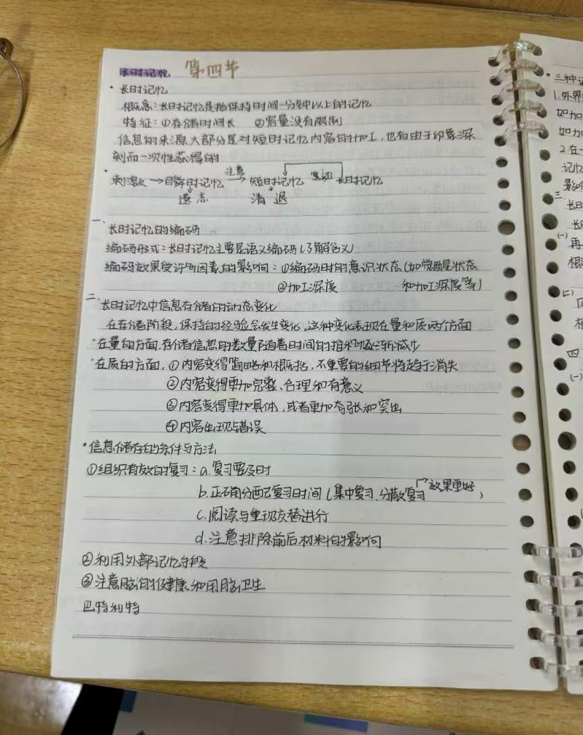 长时记忆 第四节
·长时记忆
概念:长时记忆是指保持时间一分钟以上的记忆
特征:①存储时间长 ②容量没有限制
信息的来源大部分是对短时记忆内容的加工,也有由于印象深
刻而一次性获得的
·刺激→瞬时记忆 注意→ 短时记忆 复述 长时记忆
遗忘 消退
一、长时记忆的编码
编码形式:长时记忆主要是语义编码(理解含义)
编码效果受许多因素的影响:①编码时的意识状态(如觉醒状态
②加工深度 和加工深度等)
二、长时记忆中信息存储的动态变化
在存储阶段,保持的经验会发生变化,这种变化表现在量和质两个方面
·在量的方面,存储信息的数量随着时间的推移而逐渐减少
·在质的方面,①内容变得简略和概括,不重要的细节将趋于消失
②内容变得更加完整、合理和有意义
③内容变得更加具体,或者更加夸张和突出
④内容出现错误
·信息储存的条件与方法
①组织有效的复习:a.复习要及时
b.正确分配复习时间(集中复习、分散复习 效果更好)
c.阅读与重现交替进行
d.注意排除前后材料的影响
②利用外部记忆手段
③注意脑的健康和用脑卫生
巴特利特